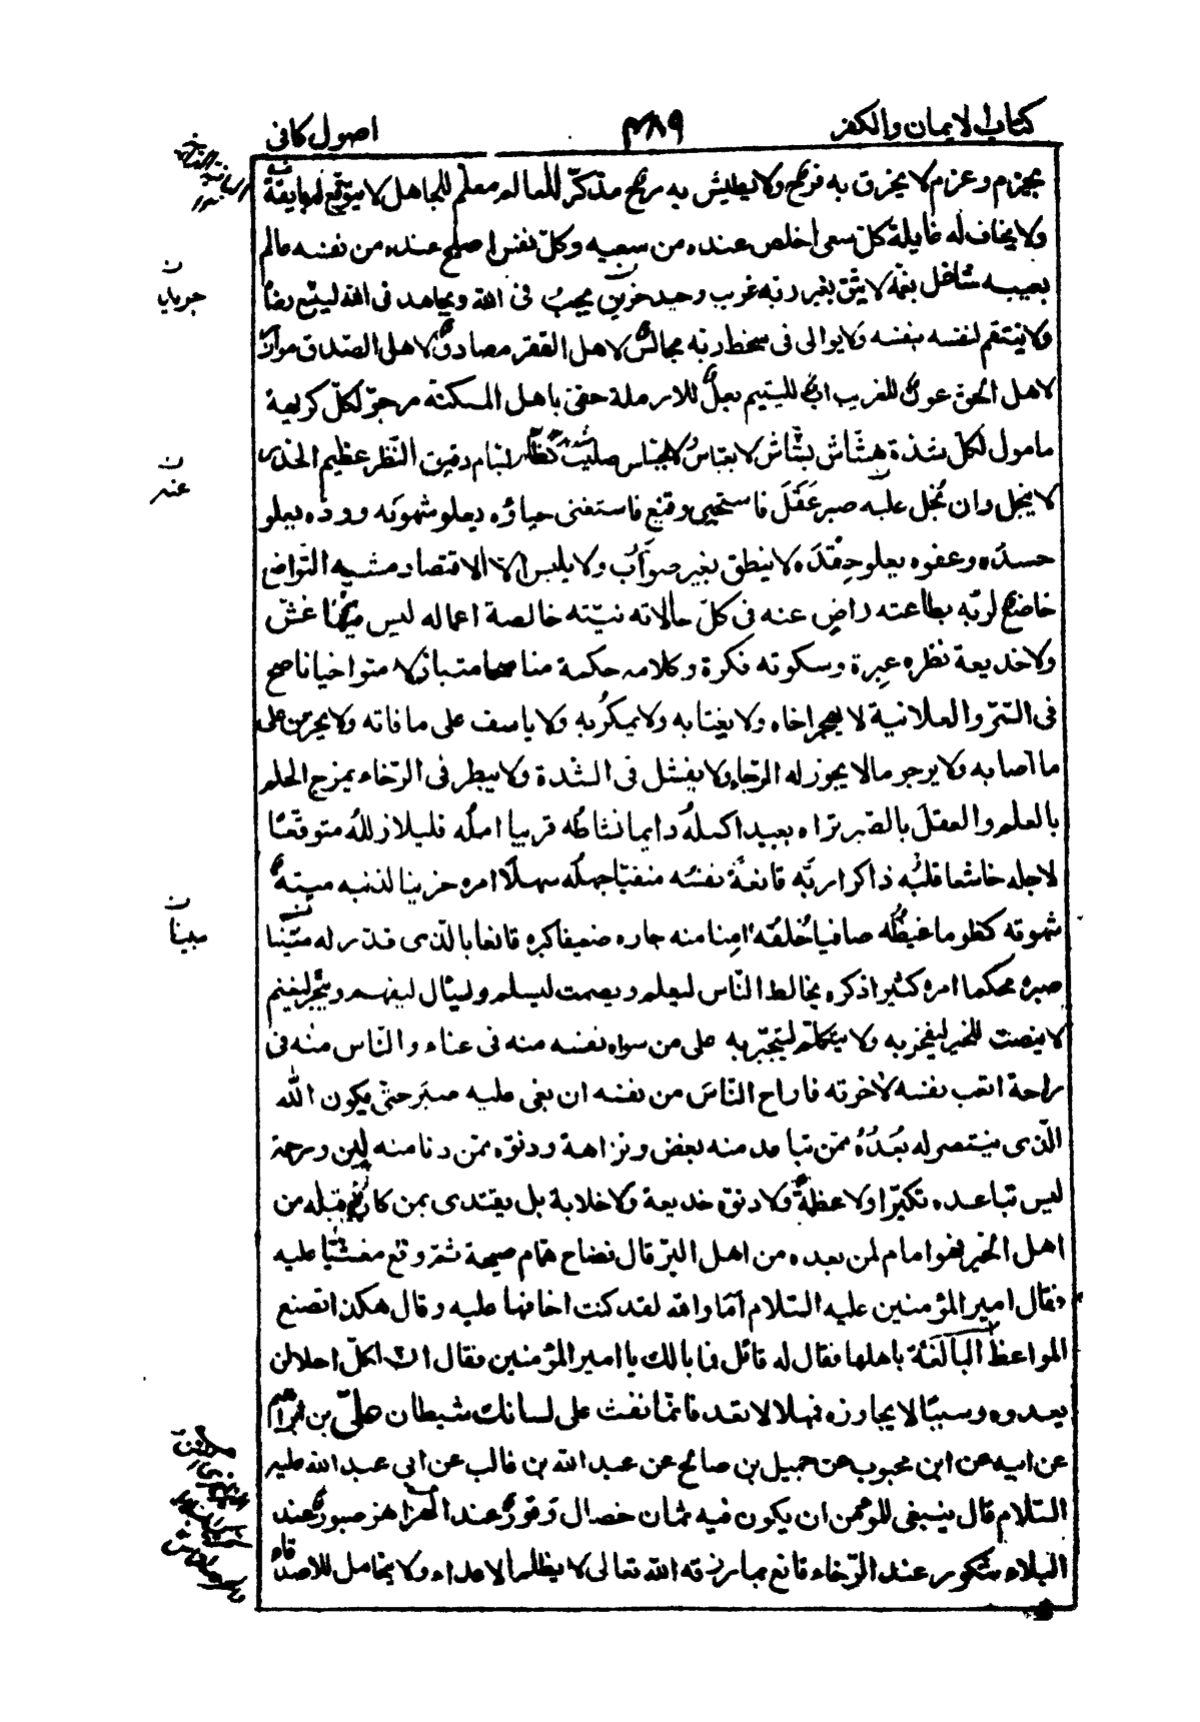 كتاب الايمان والكفر ٤٨٩ اصول كافى
بحزم وعزم لا يخرق به فرح ولا يطيش به مرح مذكّر للعالم معلّم للجاهل لا يتوقّع له بايقة
ولا يخاف له غايلة كلّ سعى اخلص عنده من سعيه وكلّ نفس اصلح عنده من نفسه عالم
بعيبه شاغل بغمّه لا يثق بغير ربّه غريب وحيد حزين يحبّ فى الله ويجاهد فى الله ليتّبع رضاه
ولا ينتقم لنفسه بنفسه ولا يوالى فى سخط ربّه مجالسٌ لاهل الفقر مصادقٌ لاهل الصّدق موازرٌ
لاهل الحق عونٌ للغريب ابٌ لليتيم بعلٌ للارملة حفىّ باهل المسكنة مرجوّ لكلّ كريهة
مامول لكلّ شدّة هشّاش بشّاش لا بعبّاسٌ لا بجسّاس صليب كظّام بسّام دقيق النّظر عظيم الحذر
لا يبخل وان بُخل عليه صبر عَقَلَ فاستحيى وقنع فاستغنى حياؤه يعلو شهوته وودّه يعلو
حسدَه وعفوه يعلو حِقْدَه لا ينطق بغير صوابٌ ولا يلبس الا الاقتصاد مشيه التّواضع
خاضعٌ لربّه بطاعته راضٍ عنه فى كلّ حالاته نيّته خالصة اعماله ليس فيها غشّ
ولا خديعة نظره عبرة وسكوته فكرة وكلامه حكمة مناصحا متباذلا متواخيا ناصح
فى السّرّ والعلانية لا يهجر اخاه ولا يغتابه ولا يمكرُ به ولا ياسف على ما فاته ولا يحزن على
ما اصابه ولا يرجو ما لا يجوز له الرّجاء ولا يفشل فى الشّدة ولا يبطر فى الرّخاء يمزج الحلم
بالعلم والعقلَ بالصّبر تراه بعيدا كسلُه دايما نشاطُه قريبا املُه قليلا زللُه متوقّعًا
لاجله خاشعا قلبُه ذاكرا ربّه قانعةً نفسُه منفيّا جهلُه سهلًا امره حزينا لذنبه ميتةً
شهوته كظوما غيظُه صافيا خُلقُه امِنا منه جاره ضعيفا كبره قانعا بالّذى قدّر له متينا
صبره محكما امره كثيرا ذكره يخالط النّاس ليعلم ويصمت ليسلم ويسال ليفهم ويتّجر ليغنم
لا ينصت للخبر ليفخر به ولا يتكلّم ليتجبّر به على من سواه نفسه منه فى عناء والنّاس منه فى
راحة اتعب نفسه لاخرته فاراح النّاسَ من نفسه ان بغى عليه صبَر حتى يكون الله
الّذى ينتصر له بُعدُهُ ممّن تباعد منه بغض ونزاهة ودنوّه ممّن دنا منه لين ورحمة
ليس تباعده تكبّرا ولا عظمةً ولا دنوّه خديعة ولا خلابة بل يقتدى بمن كان قبله من
اهل الخير فهو امام لمن بعده من اهل البرّ قال فصاح همّام صيحة ثمّ وقع مغشيّا عليه
فقال امير المؤمنين عليه السّلام أمَا والله لقد كنت اخافها عليه وقال هكذا تصنع
المواعظ البالغَة باهلها فقال له قائل فما بالك يا امير المؤمنين فقال انّ لكلّ اجلا لن
يعدوه وسببًا لا يجاوزه فمهلا لا تعد فانّما نفث على لسانك شيطان علىّ بن ابراهيم
عن ابيه عن ابن محبوب عن جميل بن صالح عن عبد الله بن غالب عن ابى عبد الله عليه
السّلام قال ينبغى للمؤمن ان يكون فيه ثمان خصال وقورٌ عند الهزاهز صبورٌ عند
البلاء شكور عند الرّخاء قانع بما رزقه الله تعالى لا يظلم الاعداء ولا يتحامل للاصدقاء